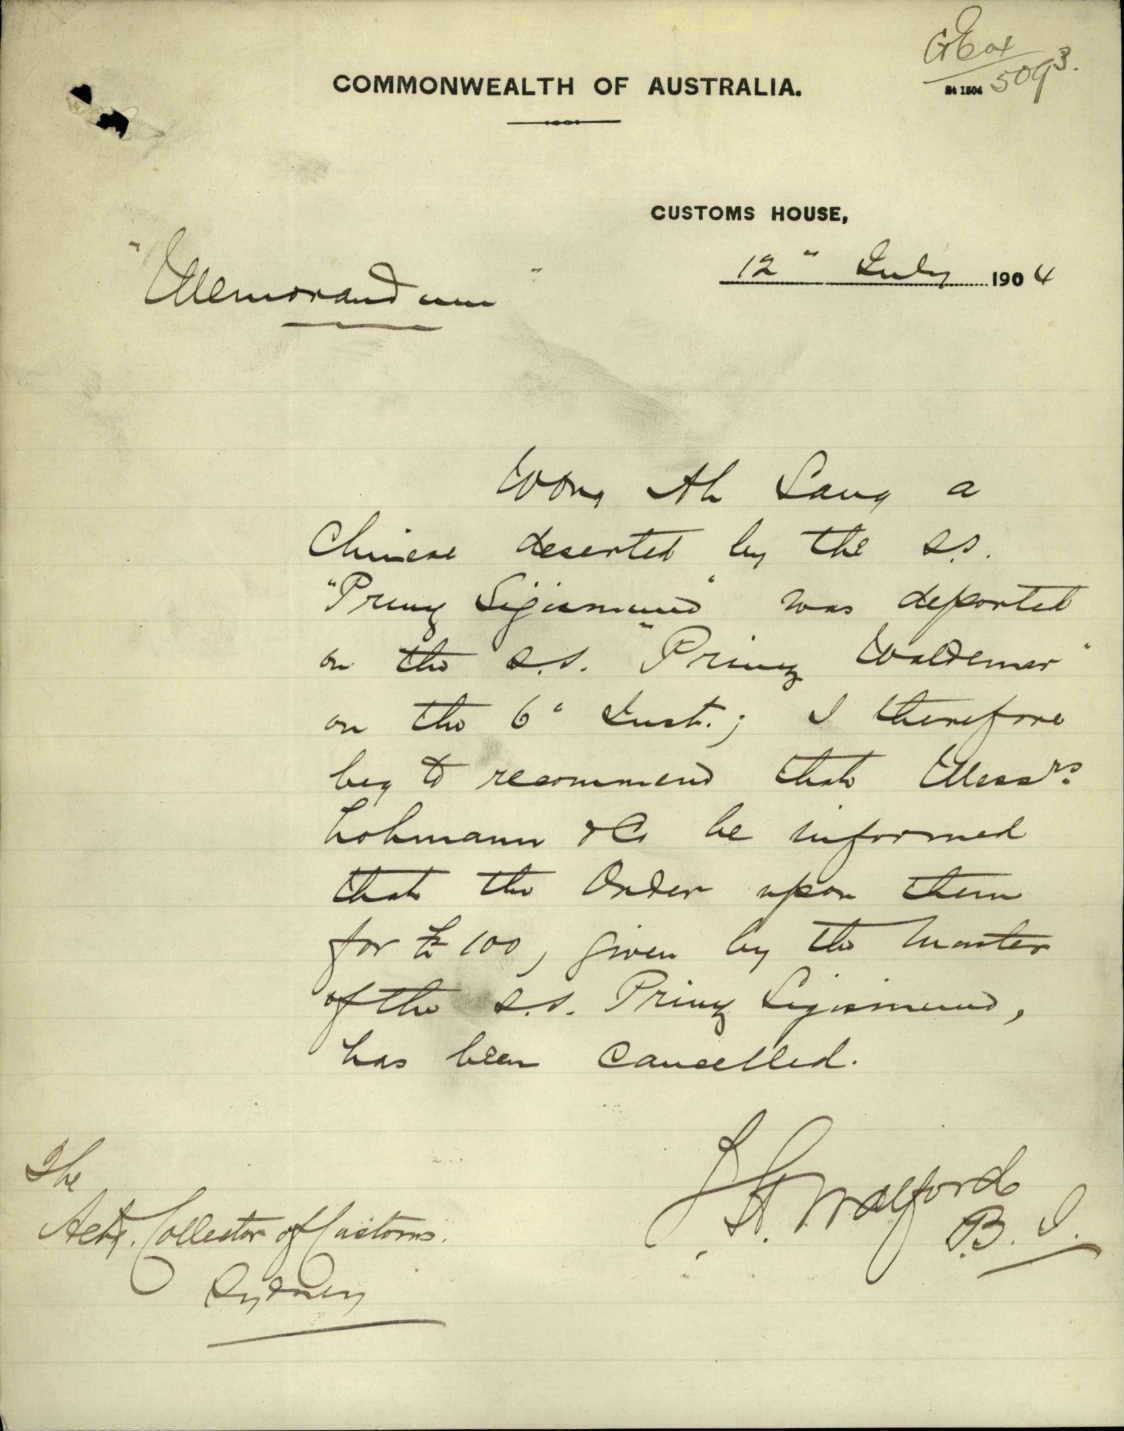 5093.
COMMONWEALTH OF AUSTRALIA.
CUSTOMS HOUSE,
12" July 1904
"Memorandum"
Wong Ah Sang a
Chinese deserted by the s.s.
"Prinz Sigismund" was deported
on the s.s. "Prinz Waldemar"
on the 6" Inst.; I therefore
beg to recommend that Messrs.
Lohmann & Co be informed
that the Order upon them
for £100, given by the Master
of the s.s. Prinz Sigismund,
has been cancelled.
The
Actg. Collector of Customs.
Sydney
B. I.